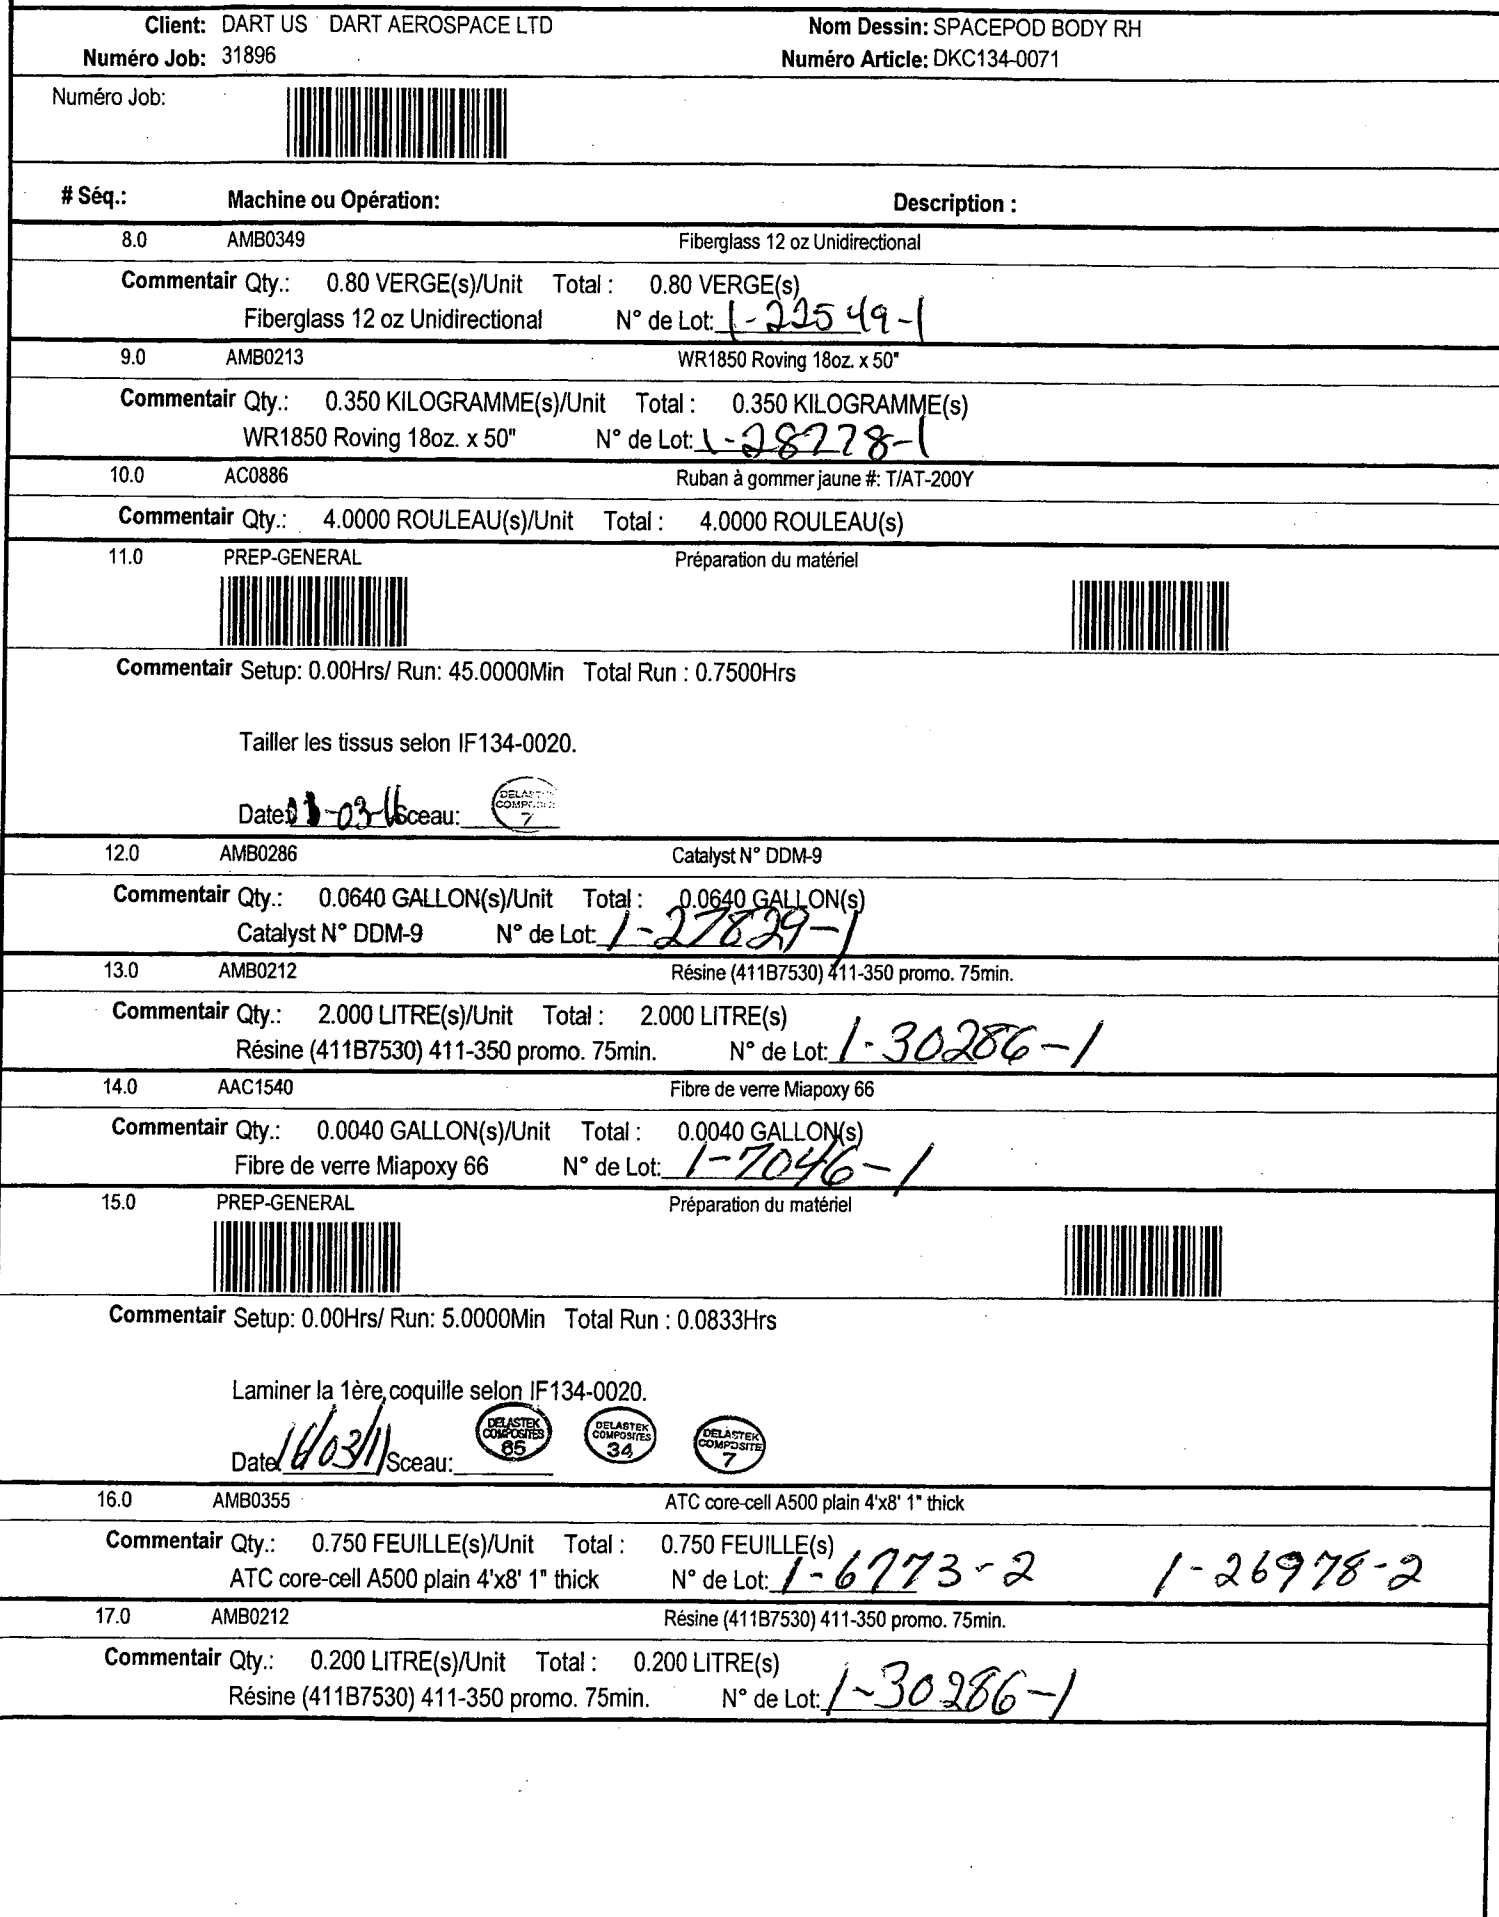 Client: DART US DART AEROSPACE LTD Nom Dessin: SPACEPOD BODY RH
Numéro Job: 31896 Numéro Article: DKC134-0071
Numéro Job:
# Séq.: Machine ou Opération: Description :
8.0 AMB0349 Fiberglass 12 oz Unidirectional
Commentair Qty.: 0.80 VERGE(s)/Unit Total : 0.80 VERGE(s)
Fiberglass 12 oz Unidirectional N° de Lot: 1-22549-1
9.0 AMB0213 WR1850 Roving 18oz. x 50"
Commentair Qty.: 0.350 KILOGRAMME(s)/Unit Total : 0.350 KILOGRAMME(s)
WR1850 Roving 18oz. x 50" N° de Lot: 1-28778-1
10.0 AC0886 Ruban à gommer jaune #: T/AT-200Y
Commentair Qty.: 4.0000 ROULEAU(s)/Unit Total : 4.0000 ROULEAU(s)
11.0 PREP-GENERAL Préparation du matériel
Commentair Setup: 0.00Hrs/ Run: 45.0000Min Total Run : 0.7500Hrs
Tailler les tissus selon IF134-0020.
Date: -03-16 Sceau: DELASTEK COMPOSITES 7
12.0 AMB0286 Catalyst N° DDM-9
Commentair Qty.: 0.0640 GALLON(s)/Unit Total : 0.0640 GALLON(s)
Catalyst N° DDM-9 N° de Lot: 1-27829-1
13.0 AMB0212 Résine (411B7530) 411-350 promo. 75min.
Commentair Qty.: 2.000 LITRE(s)/Unit Total : 2.000 LITRE(s)
Résine (411B7530) 411-350 promo. 75min. N° de Lot: 1-30286-1
14.0 AAC1540 Fibre de verre Miapoxy 66
Commentair Qty.: 0.0040 GALLON(s)/Unit Total : 0.0040 GALLON(s)
Fibre de verre Miapoxy 66 N° de Lot: 1-7046-1
15.0 PREP-GENERAL Préparation du matériel
Commentair Setup: 0.00Hrs/ Run: 5.0000Min Total Run : 0.0833Hrs
Laminer la 1ère coquille selon IF134-0020.
Date: 16/03/11 Sceau: DELASTEK COMPOSITES 65 DELASTEK COMPOSITES 34 DELASTEK COMPOSITE 7
16.0 AMB0355 ATC core-cell A500 plain 4'x8' 1" thick
Commentair Qty.: 0.750 FEUILLE(s)/Unit Total : 0.750 FEUILLE(s)
ATC core-cell A500 plain 4'x8' 1" thick N° de Lot: 1-6773-2 1-26978-2
17.0 AMB0212 Résine (411B7530) 411-350 promo. 75min.
Commentair Qty.: 0.200 LITRE(s)/Unit Total : 0.200 LITRE(s)
Résine (411B7530) 411-350 promo. 75min. N° de Lot: 1-30286-1